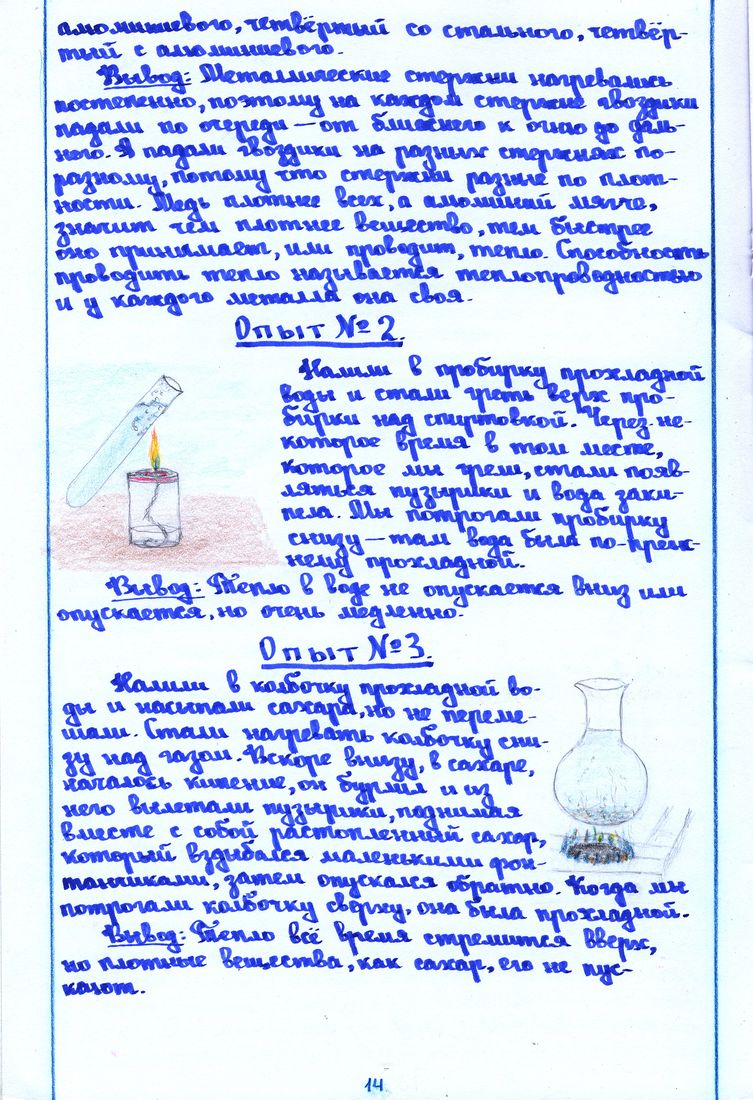 алюминиевого, четвёртый со стального, четвёр-
тый с алюминиевого.
Вывод: Металлические стержни нагревались
постепенно, поэтому на каждом стержне гвоздики
падали по очереди — от ближнего к огню до даль-
него. А падали гвоздики на разных стержнях по-
разному, потому что стержни разные по плот-
ности. Медь плотнее всех, а алюминий мягче,
значит чем плотнее вещество, тем быстрее
оно принимает, или проводит, тепло. Способность
проводить тепло называется теплопроводностью
и у каждого металла она своя.
Опыт №2.
Налили в пробирку прохладной
воды и стали греть верх про-
бирки над спиртовкой. Через не-
которое время в том месте,
которое мы грели, стали появ-
ляться пузырики и вода заки-
пела. Мы потрогали пробирку
снизу — там вода была по-преж-
нему прохладной.
Вывод: Тепло в воде не опускается вниз или
опускается, но очень медленно.
Опыт №3.
Налили в колбочку прохладной во-
ды и насыпали сахара, но не переме-
шали. Стали нагревать колбочку сни-
зу над газом. Вскоре внизу, в сахаре,
началось кипение, он бурлил и из
него вылетали пузырики, поднимая
вместе с собой растопленный сахар,
который вздыбался маленькими фон-
танчиками, затем опускался обратно. Когда мы
потрогали колбочку сверху, она была прохладной.
Вывод: Тепло всё время стремится вверх,
но плотные вещества, как сахар, его не пус-
кают.
14